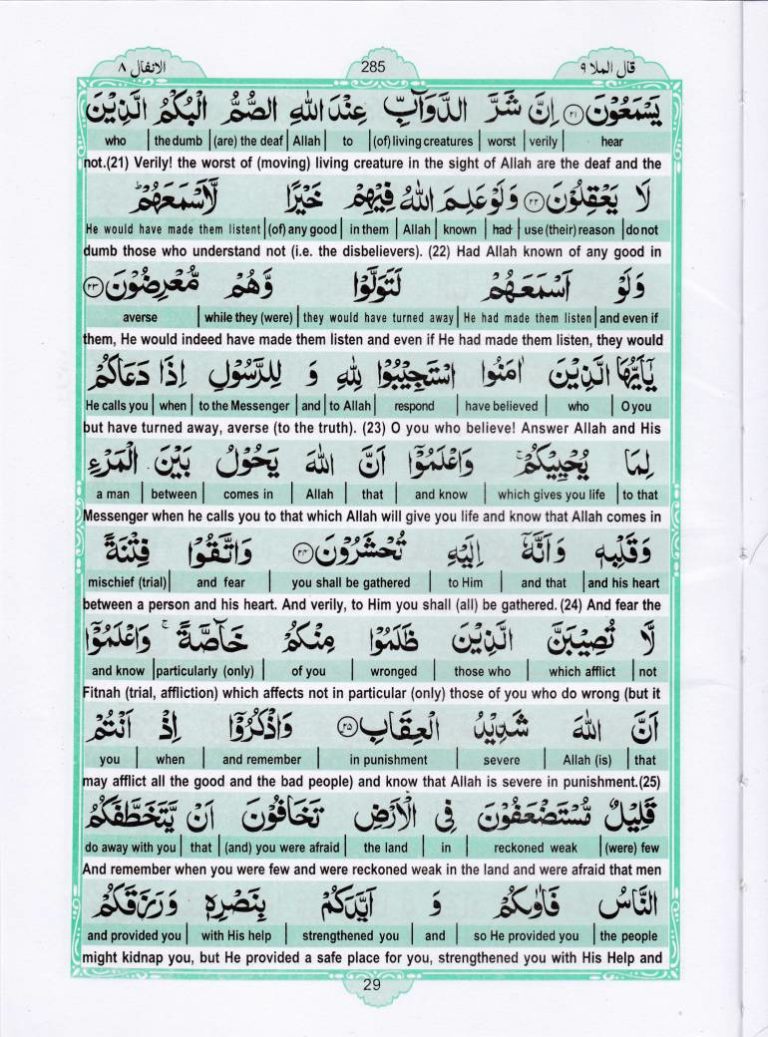 الانفال ٨ 285 قال الملا ٩
يَسْمَعُوْنَ ﴿٢١﴾ اِنَّ شَرَّ الدَّوَآبِّ عِنْدَ اللّٰهِ الصُّمُّ الْبُكْمُ الَّذِيْنَ
who | the dumb | (are) the deaf | Allah | to | (of) living creatures | worst | verily | hear
not.(21) Verily! the worst of (moving) living creature in the sight of Allah are the deaf and the
لَا يَعْقِلُوْنَ ﴿٢٢﴾ وَلَوْ عَلِمَ اللّٰهُ فِيْهِمْ خَيْرًا لَّاَسْمَعَهُمْ ؕ
He would have made them listent | (of) any good | in them | Allah | known | had | use (their) reason | do not
dumb those who understand not (i.e. the disbelievers). (22) Had Allah known of any good in
وَلَوْ اَسْمَعَهُمْ لَتَوَلَّوْا وَّهُمْ مُّعْرِضُوْنَ ﴿٢٣﴾
averse | while they (were) | they would have turned away | He had made them listen | and even if
them, He would indeed have made them listen and even if He had made them listen, they would
يٰۤاَيُّهَا الَّذِيْنَ اٰمَنُوا اسْتَجِيْبُوْا لِلّٰهِ وَ لِلرَّسُوْلِ اِذَا دَعَاكُمْ
He calls you | when | to the Messenger | and | to Allah | respond | have believed | who | O you
but have turned away, averse (to the truth). (23) O you who believe! Answer Allah and His
لِمَا يُحْيِيْكُمْ ۚ وَاعْلَمُوْۤا اَنَّ اللّٰهَ يَحُوْلُ بَيْنَ الْمَرْءِ
a man | between | comes in | Allah | that | and know | which gives you life | to that
Messenger when he calls you to that which Allah will give you life and know that Allah comes in
وَقَلْبِهٖ وَاَنَّهٗۤ اِلَيْهِ تُحْشَرُوْنَ ﴿٢٤﴾ وَاتَّقُوْا فِتْنَةً
mischief (trial) | and fear | you shall be gathered | to Him | and that | and his heart
between a person and his heart. And verily, to Him you shall (all) be gathered. (24) And fear the
لَّا تُصِيْبَنَّ الَّذِيْنَ ظَلَمُوْا مِنْكُمْ خَآصَّةً ۚ وَاعْلَمُوْۤا
and know | particularly (only) | of you | wronged | those who | which afflict | not
Fitnah (trial, affliction) which affects not in particular (only) those of you who do wrong (but it
اَنَّ اللّٰهَ شَدِيْدُ الْعِقَابِ ﴿٢٥﴾ وَاذْكُرُوْۤا اِذْ اَنْتُمْ
you | when | and remember | in punishment | severe | Allah (is) | that
may afflict all the good and the bad people) and know that Allah is severe in punishment.(25)
قَلِيْلٌ مُّسْتَضْعَفُوْنَ فِى الْاَرْضِ تَخَافُوْنَ اَنْ يَّتَخَطَّفَكُمُ
do away with you | that | (and) you were afraid | the land | in | reckoned weak | (were) few
And remember when you were few and were reckoned weak in the land and were afraid that men
النَّاسُ فَاٰوٰىكُمْ وَ اَيَّدَكُمْ بِنَصْرِهٖ وَرَزَقَكُمْ
and provided you | with His help | strengthened you | and | so He provided you | the people
might kidnap you, but He provided a safe place for you, strengthened you with His Help and
29